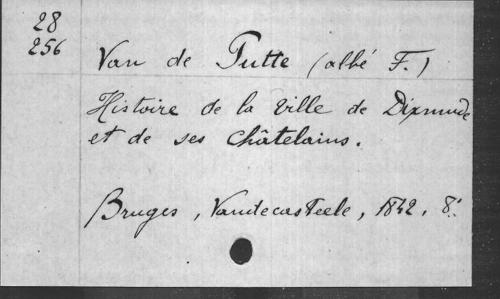 28
256
Van de Putte (abbé F.)
Histoire de la ville de Dixmude
et de ses châtelains.
Bruges, Vandecasteele, 1842, 8°.